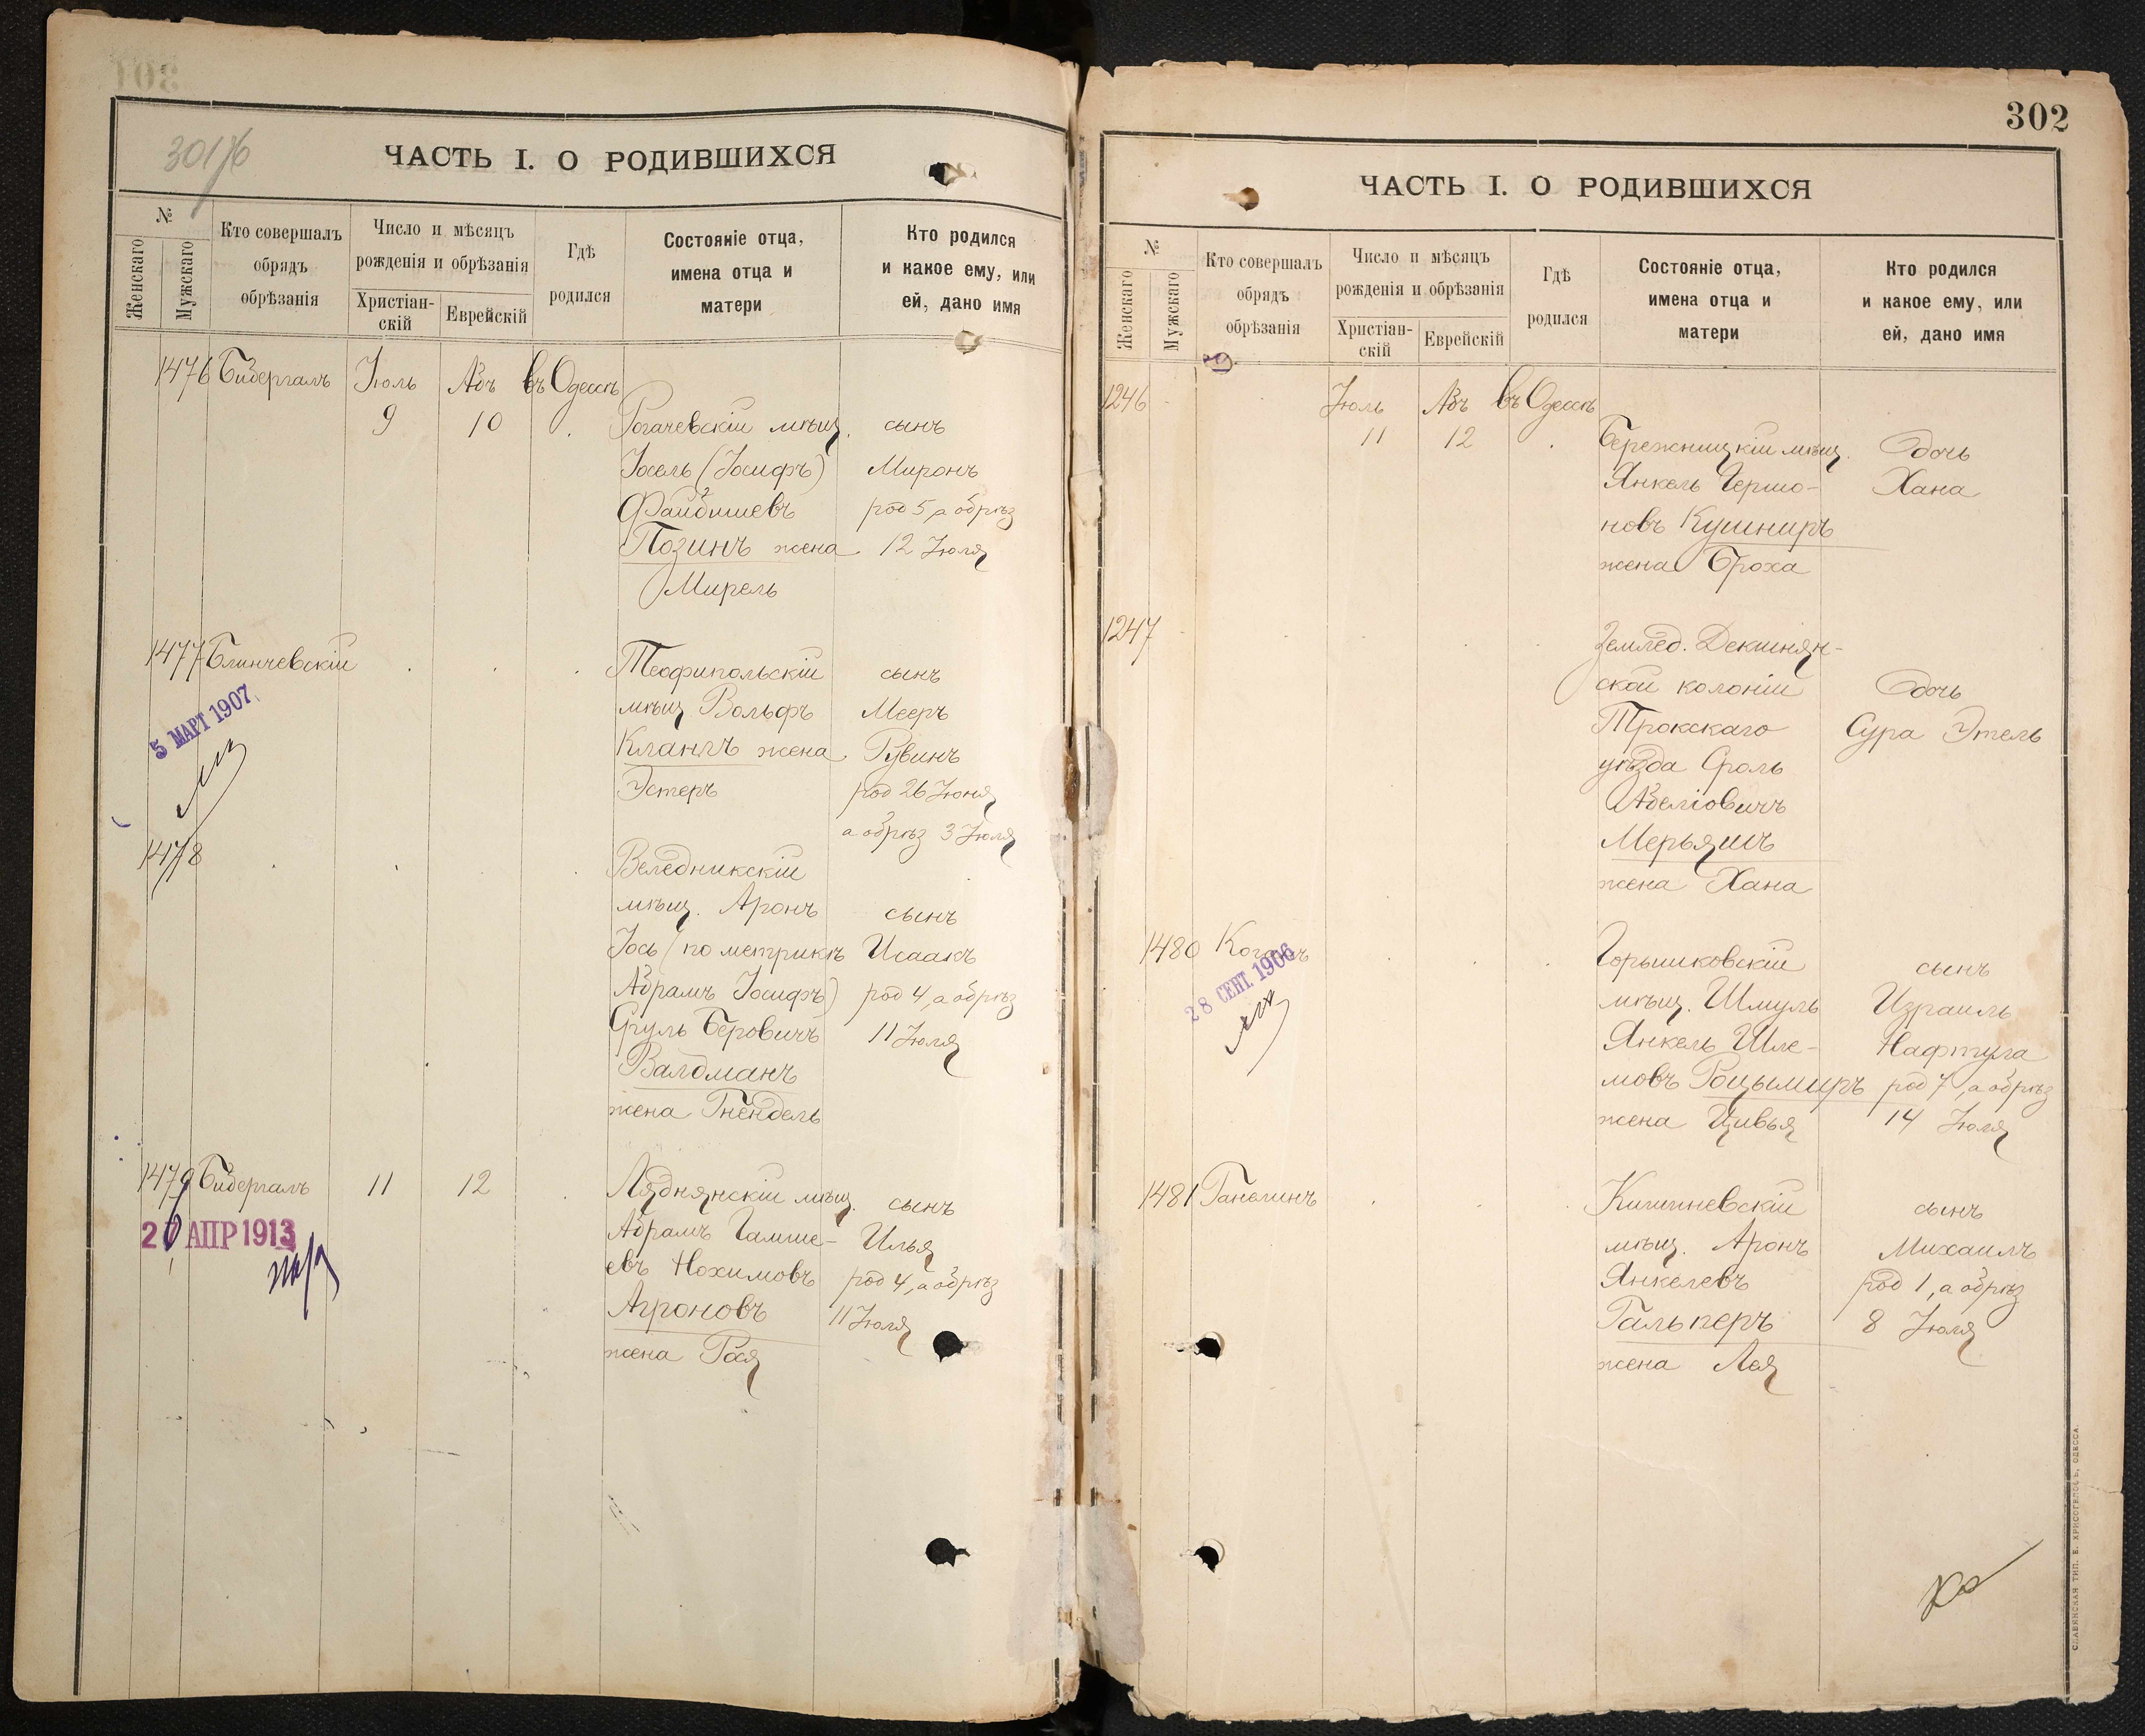 301/б
ЧАСТЬ I. О РОДИВШИХСЯ
№
Женскаго
Мужскаго
Кто совершалъ
обрядъ
обрѣзанія
Число и мѣсяцъ
рожденія и обрѣзанія
Христіан-
скій
Еврейскій
Гдѣ
родился
Состояніе отца,
имена отца и
матери
Кто родился
и какое ему, или
ей, дано имя
1476 Бидергалъ Іюль Авъ въ Одессѣ
9 10 Рогачевскій мѣщ. сынъ
Іосель (Іосифъ) Миронъ
Файбишевъ род 5, а обрѣз
Позинъ жена 12 Іюля
Мирель
1477 Блинчевскій Теофипольскій сынъ
5 МАРТ 1907
мѣщ. Вольфъ Мееръ
Клангъ жена Рувинъ
Эстеръ род 26 Іюня
а обрѣз 3 Іюля
1478 Веледникскій
мѣщ. Аронъ сынъ
Іось (по метрикѣ Исаакъ
Абрамъ Іосифъ) род 4, а обрѣз
Сруль Беровичъ 11 Іюля
Валдманъ
жена Гнендель
1479 Бидергалъ 11 12 Ляднянскій мѣщ. сынъ
АПР 1913
Абрамъ Гамше- Илья
евъ Нохимовъ род 4, а обрѣз
Агроновъ 11 Іюля
жена Рся
302
ЧАСТЬ I. О РОДИВШИХСЯ
№
Женскаго
Мужскаго
Кто совершалъ
обрядъ
обрѣзанія
Число и мѣсяцъ
рожденія и обрѣзанія
Христіан-
скій
Еврейскій
Гдѣ
родился
Состояніе отца,
имена отца и
матери
Кто родился
и какое ему, или
ей, дано имя
1246 Іюль Авъ въ Одессѣ
11 12 Бережницкій мѣщ. дочь
Янкель Гершо- Хана
новъ Кушниръ
жена Броха
1247 Землед. Декшнян-
ской колоніи дочь
Трокскаго Сура Этель
уѣзда Сроль
Абеліовичъ
Мерьяшъ
жена Хана
1480 Коганъ Горышковскій сынъ
28 СЕНТ. 1906
мѣщ. Шмуль Израиль
Янкель Шле- Нафтула
мовъ Роцымиръ род 7, а обрѣз
жена Цивья 14 Іюля
1481 Ганелинъ Кишиневскій сынъ
мѣщ. Аронъ Михаилъ
Янкелевъ род 1, а обрѣз
Гальперъ 8 Іюля
жена Лея
СЛАВЯНСКАЯ ТИП. Е. ХРИСОГЕЛОСЪ, ОДЕССА